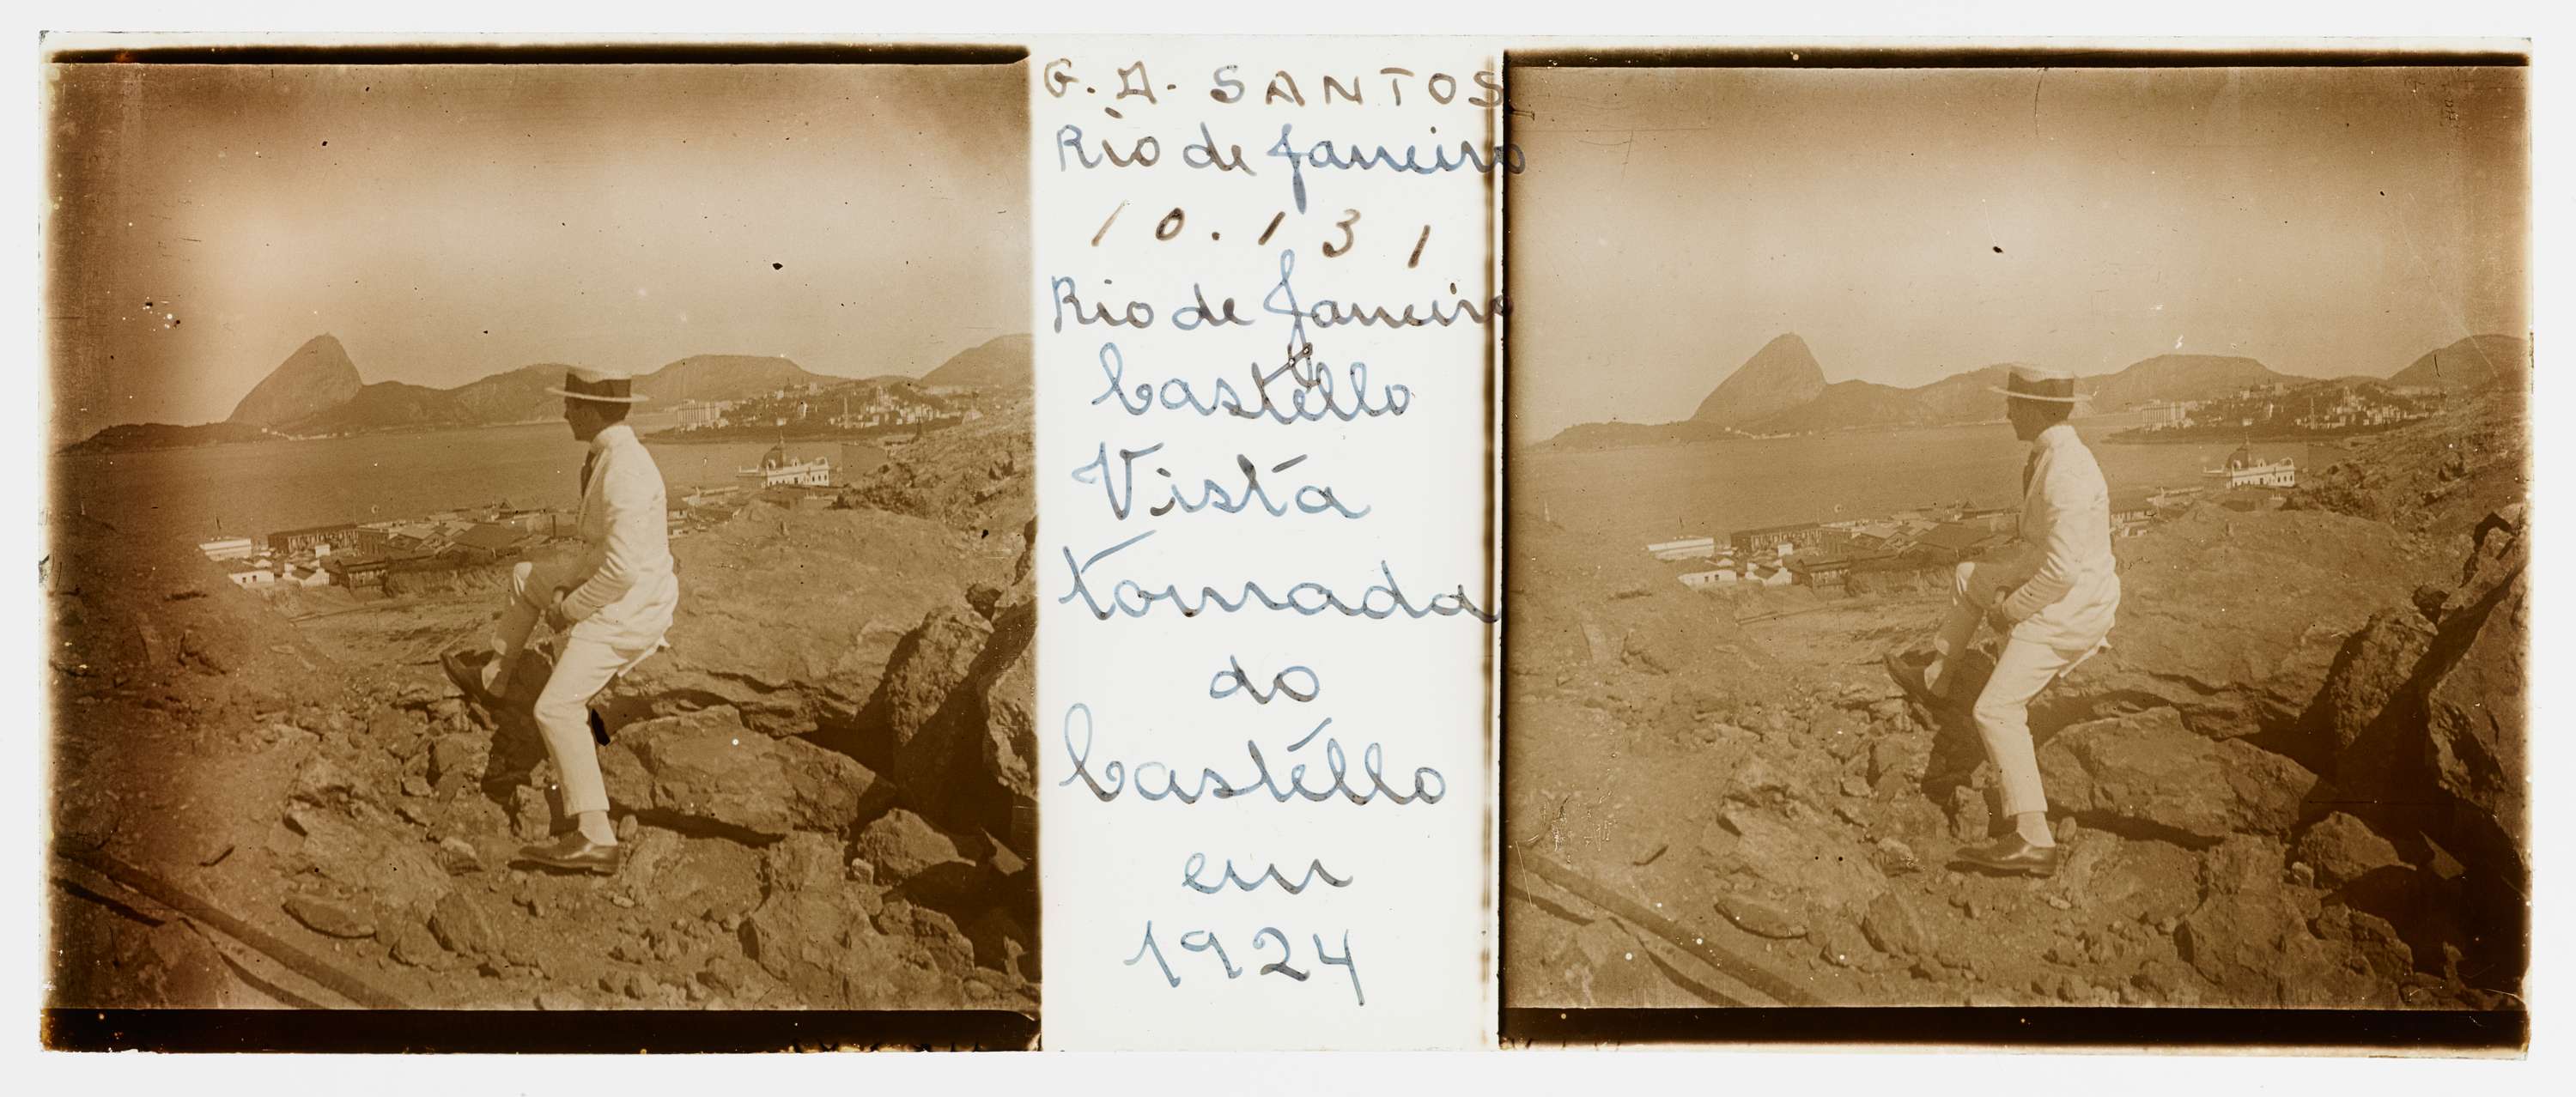 G. A. SANTOS
Rio de Janeiro
10.131
Rio de Janeiro
Castello
Vista
tomada
do
Castéllo
em
1924